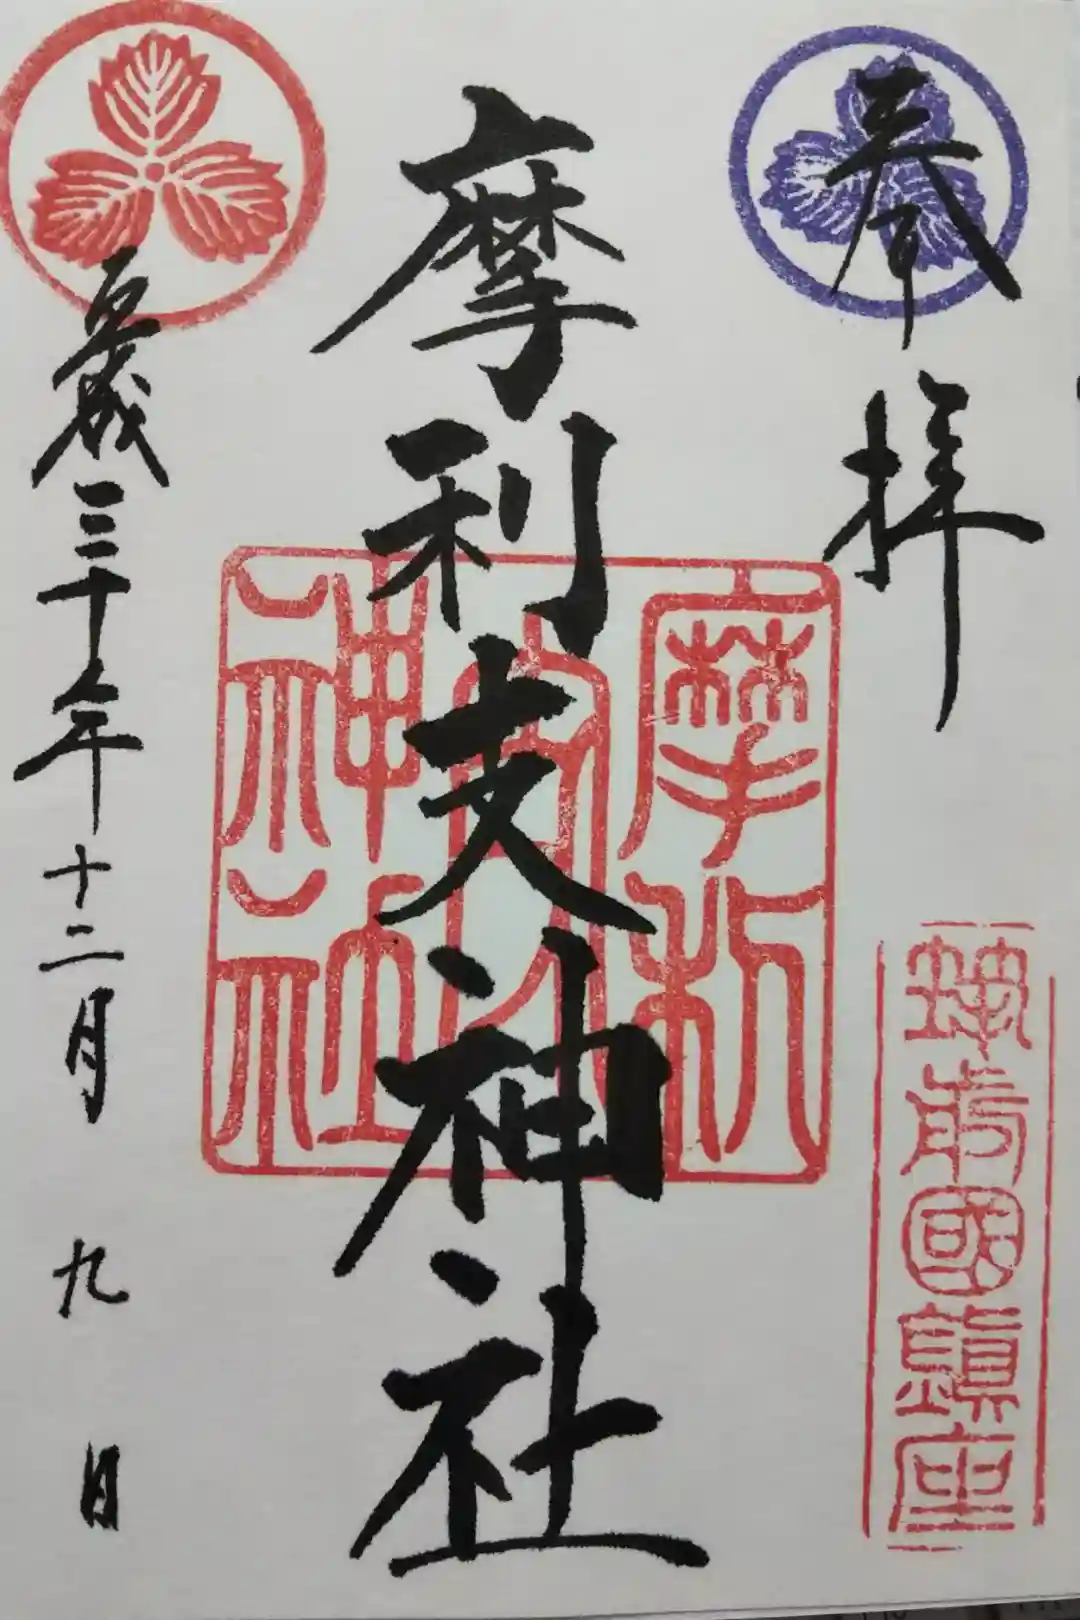 奉拝
筑前國鎮座
摩利支神社
摩利
神社
平成三十年十二月九日